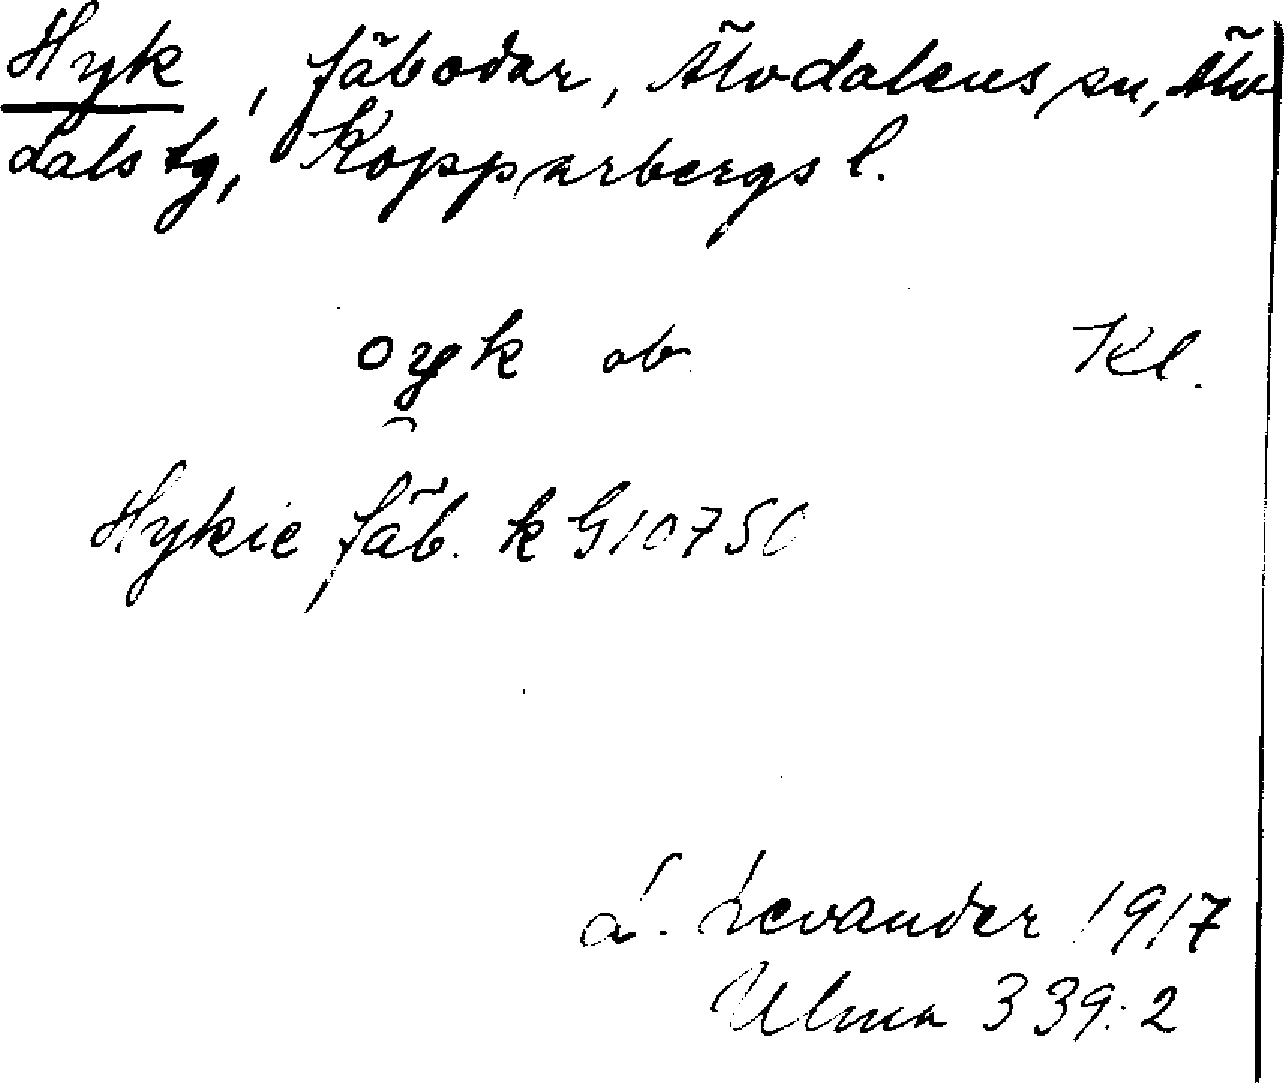 Hyk, fäbodar, Älvdalens sn, Älv-
dals tg, Kopparbergs l.
ab Kl.
Hykie fäb. k G10750
L. Levander 1917
Ulma 339:2